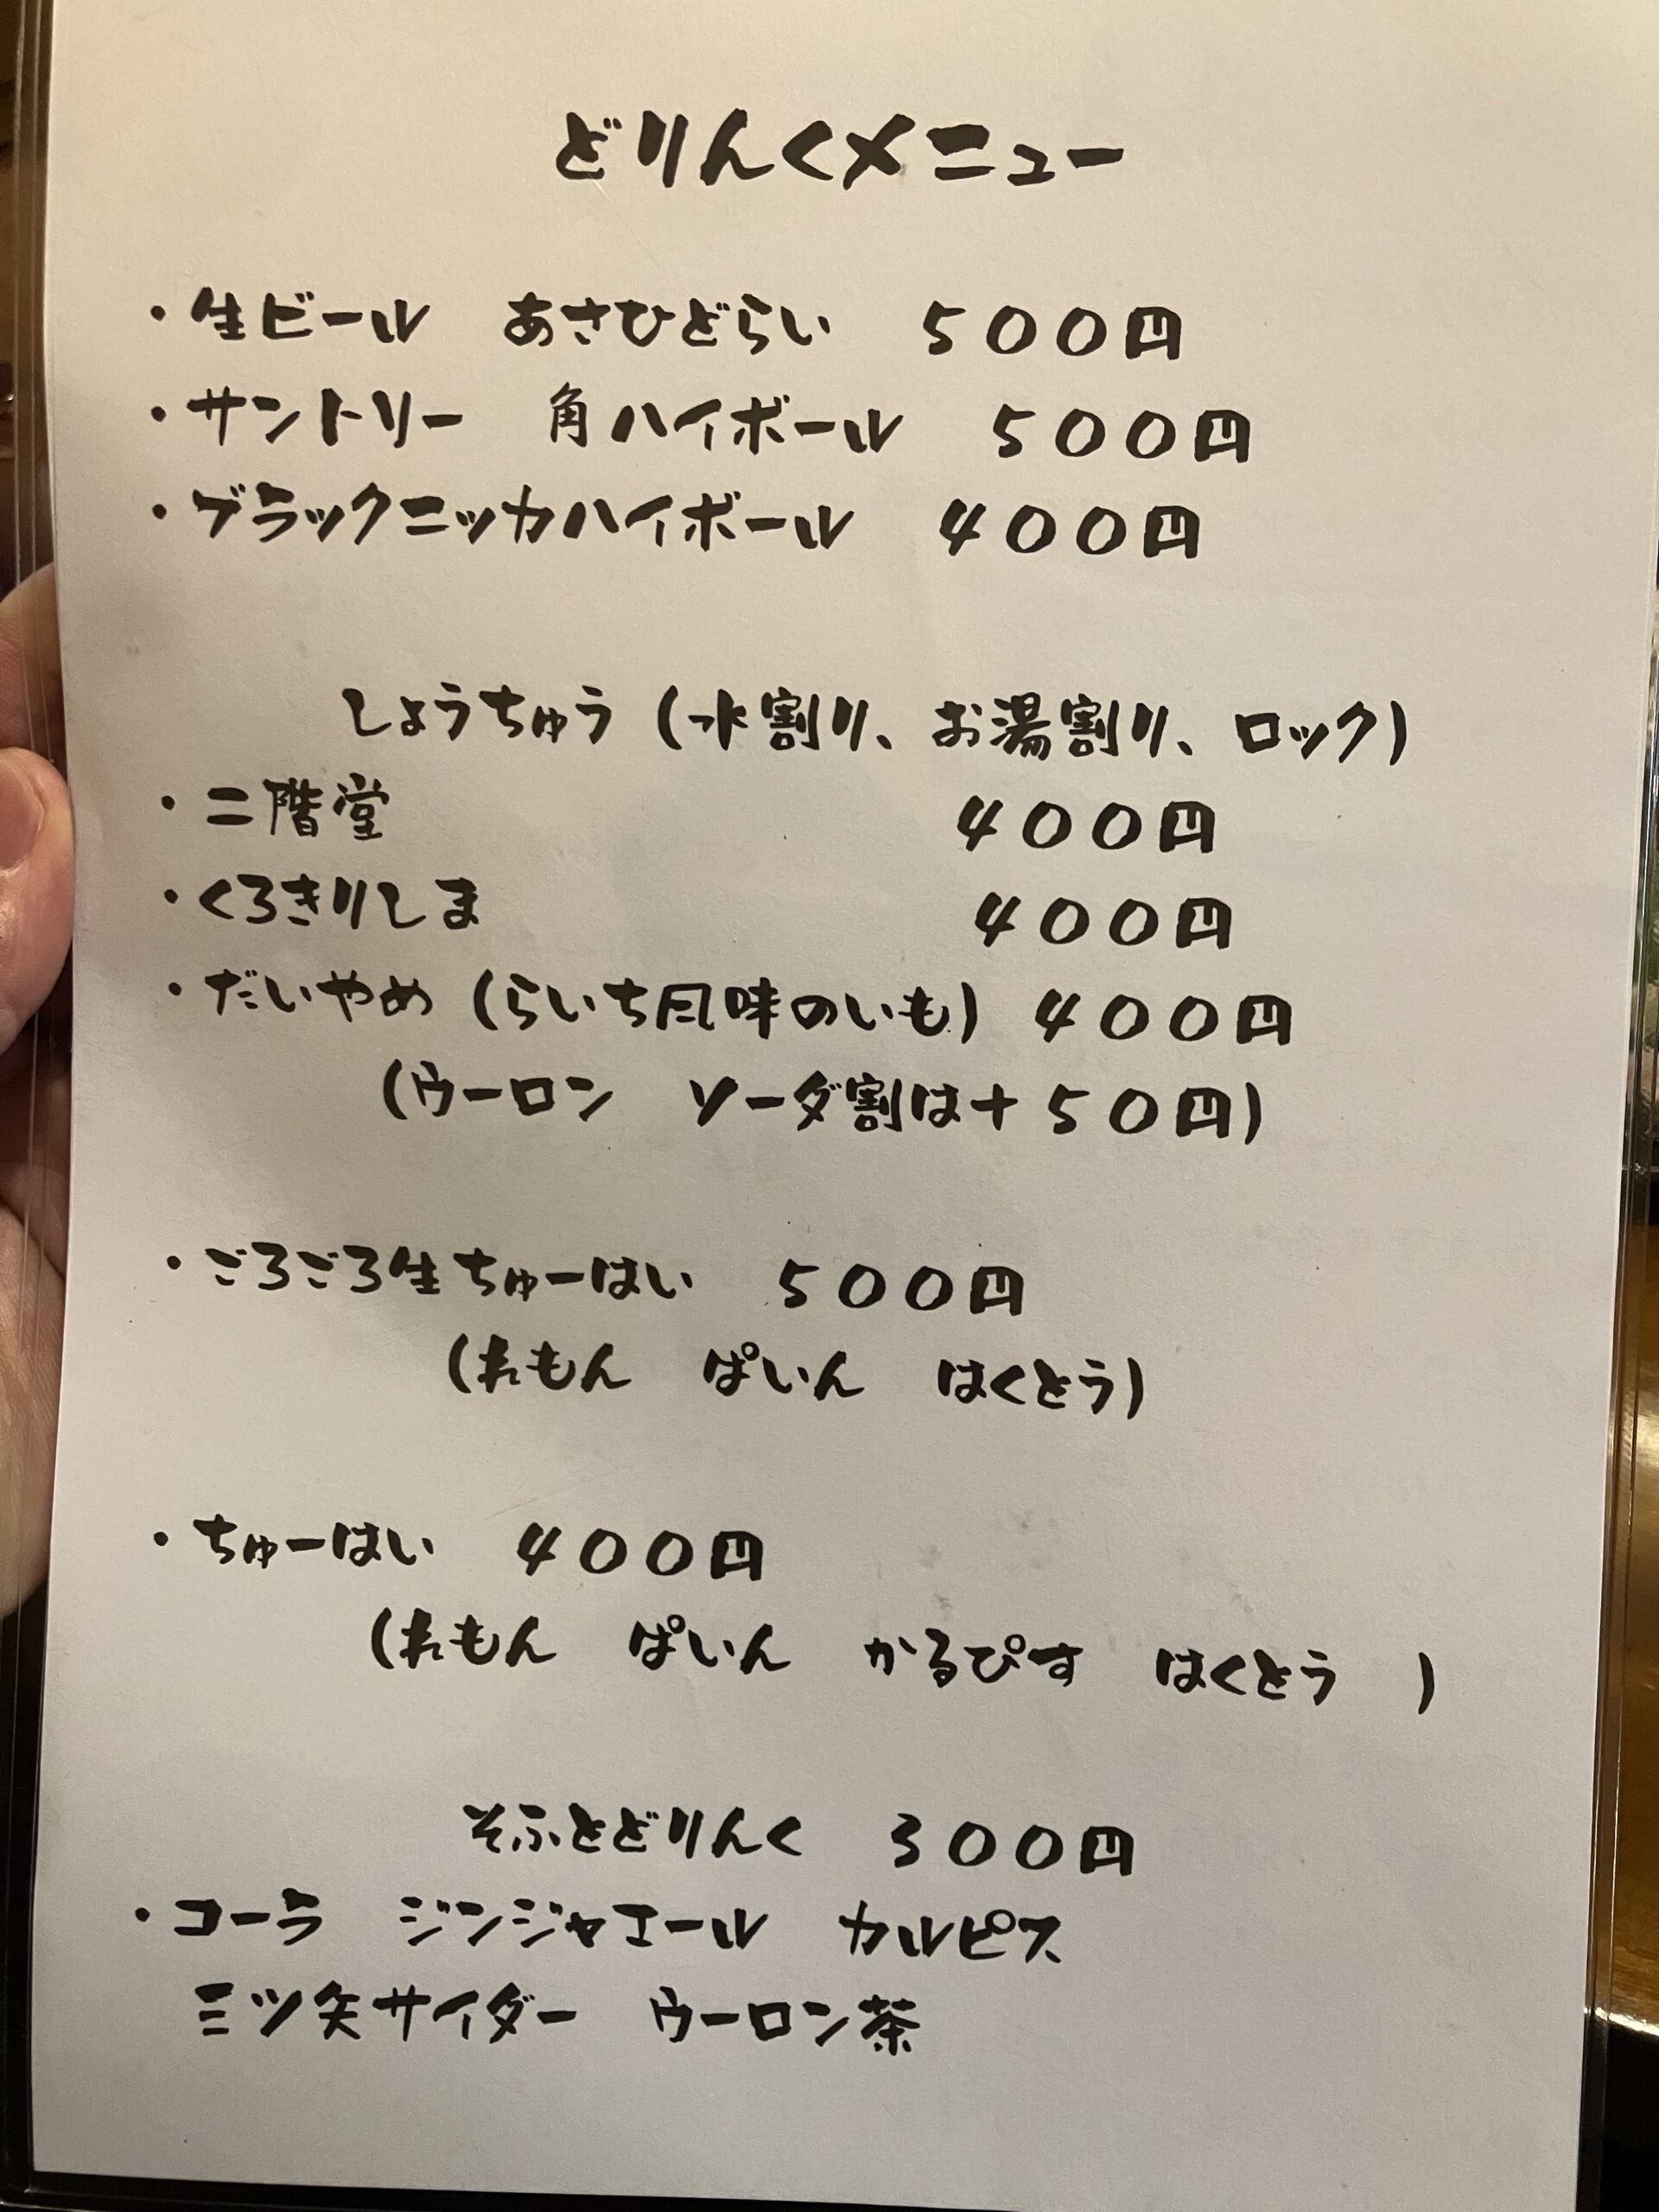 どりんくメニュー
・生ビール　あさひどらい　500円
・サントリー　角ハイボール　500円
・ブラックニッカハイボール　400円
しょうちゅう（水割り、お湯割り、ロック）
・二階堂　400円
・くろきりしま　400円
・だいやめ（らいち風味のいも）400円
（ウーロン　ソーダ割は＋50円）
・ごろごろ生ちゅーはい　500円
（れもん　ぱいん　はくとう）
・ちゅーはい　400円
（れもん　ぱいん　かるぴす　はくとう　）
そふとどりんく　300円
・コーラ　ジンジャエール　カルピス
三ツ矢サイダー　ウーロン茶